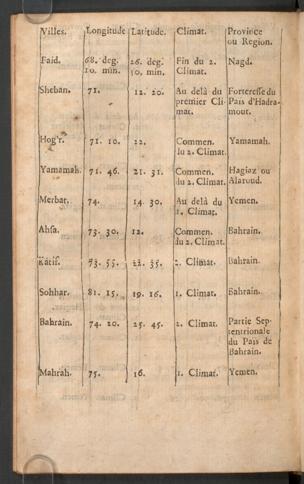 Villes. Longitude Latitude. Climat. Province
ou Region.
Faid. 68. deg. 26. deg. Fin du 2. Nagd.
10. min. 50. min. Climat.
Sheban. 71. 12. 20. Au delà du Forteresse du
premier Cli- Païs d'Hadra-
mat. mout.
Hog'r. 71. 10. 22. Commen. Yamamah.
du 2. Climat.
Yamamah. 71. 46. 21. 31. Commen. Hagiaz ou
du 2. Climat. Alaroud.
Merbat. 74. 14. 30. Au delà du Yemen.
1. Climat.
Ahsa. 73. 30. 12. Commen. Bahrain.
du 2. Climat.
Katif. 73. 55. 22. 35. 2. Climat. Bahrain.
Sohhar. 81. 15. 19. 16. 1. Climat. Bahrain.
Bahrain. 74. 20. 25. 45. 2. Climat. Partie Sep-
tentrionale
du Païs de
Bahrain.
Mahrah. 75. 16. 1. Climat. Yemen.